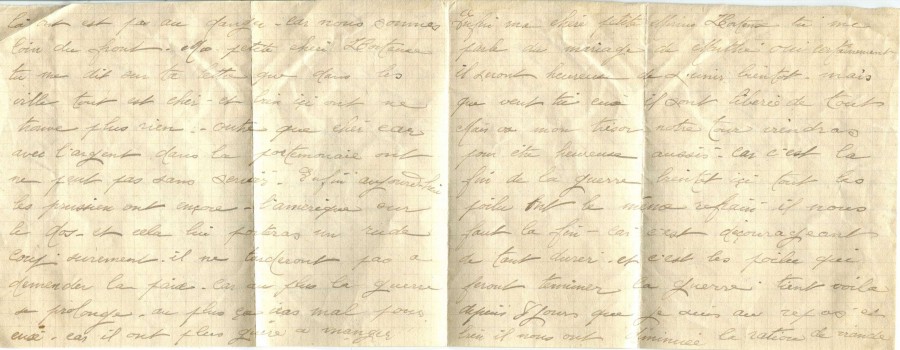 on est pas au danger. car nous sommes
loin du front. Ma petite cheri Hortense
tu me dit sur ta lettre que dans les
ville tout est cher. et bien içi ont ne
trouve plus rien. outre que cher car
avec l'argent dans la portemonaie ont
ne peut pas sans servir. Enfin aujourd'hui
les prussien ont encore l'amerique sur
le dos. et cela lui porteras un rude
coup surement. il ne tarderont pas a
demender la paix. car au plus la guerre
se prolonge. au plus ça iras mal pour
eux. car il ont plus guere a manger
Enfin ma cheri petite Hortense tu me
parle du mariage de oui certainement
il seront heureux de s'unir bientot. mais
que veut tu eux il sont libéré de tout
Enfin mon trésor notre tour viendras
pour être heureux aussis. car c'est la
fin de la guerre bientot içi tout les
poilu ont le même refrain il nous
faut la fin. car c'est décourageant
de tant durer. et c'est les poilu qui
feront terminer la guerre. tient voila
depuis 8 jours que je suis au repos. et
bien il nous ont diminuée la ration de viande